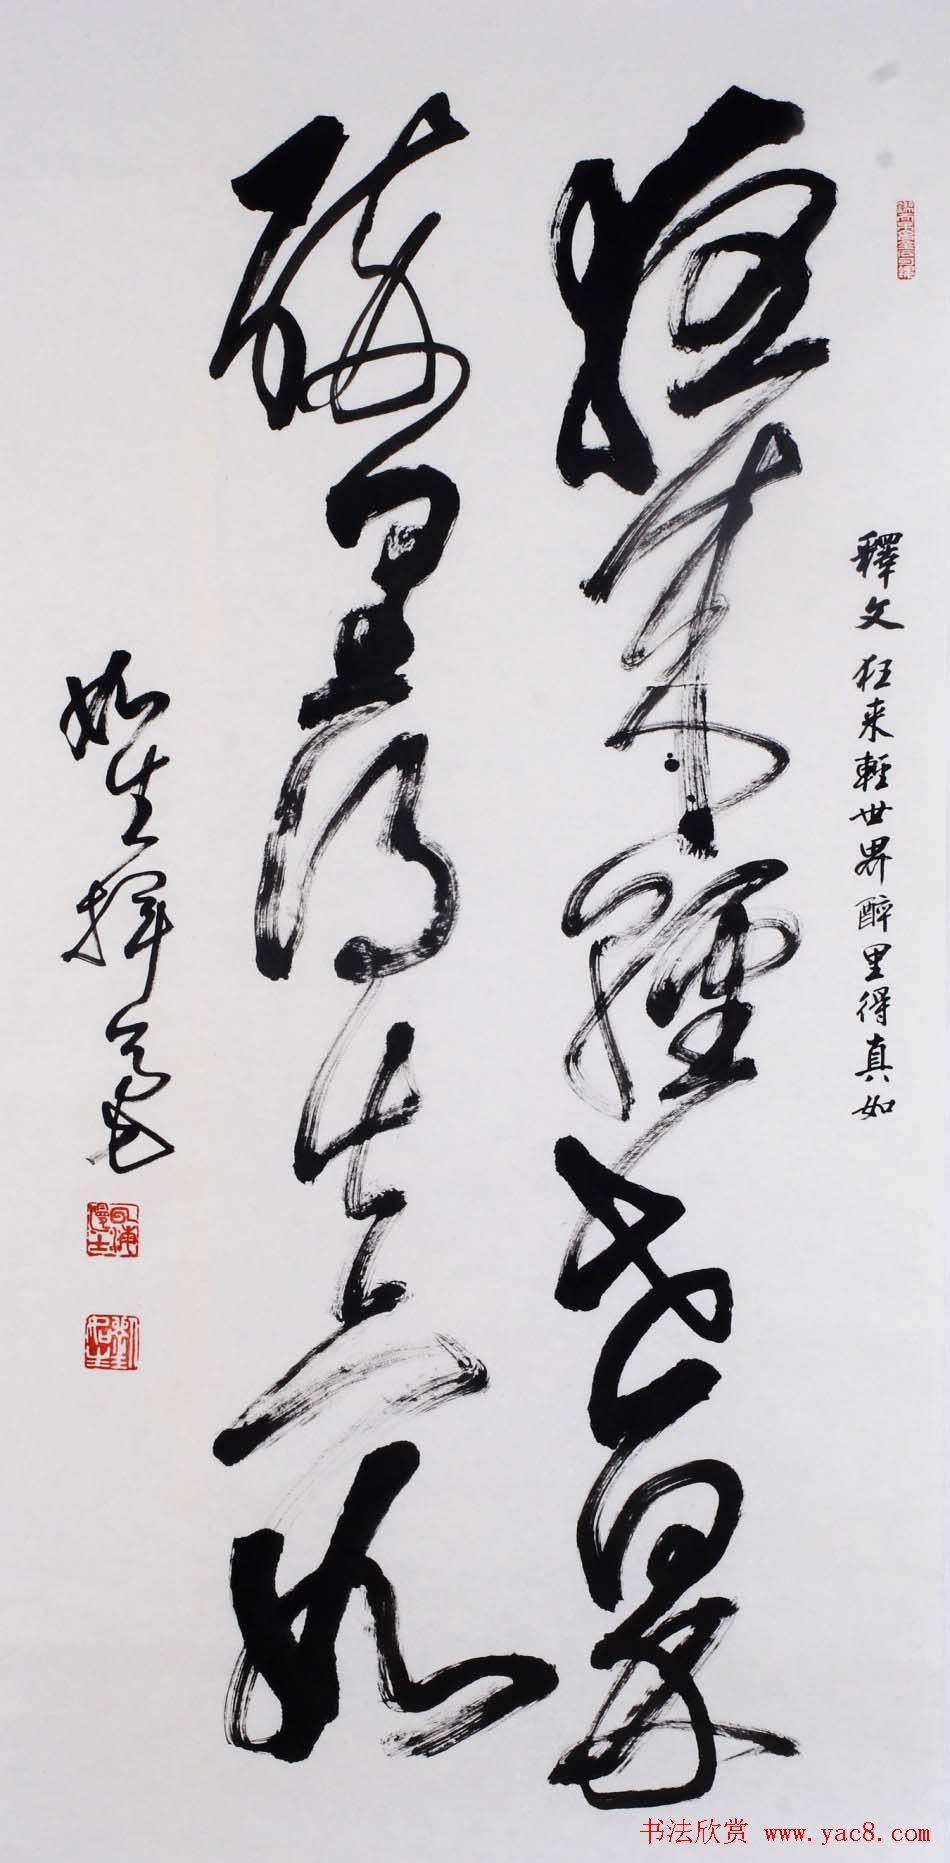 釋文 狂来輕世界醉里得真如
狂来輕世界
醉里得真如
如生揮毫
书法欣赏 www.yac8.com